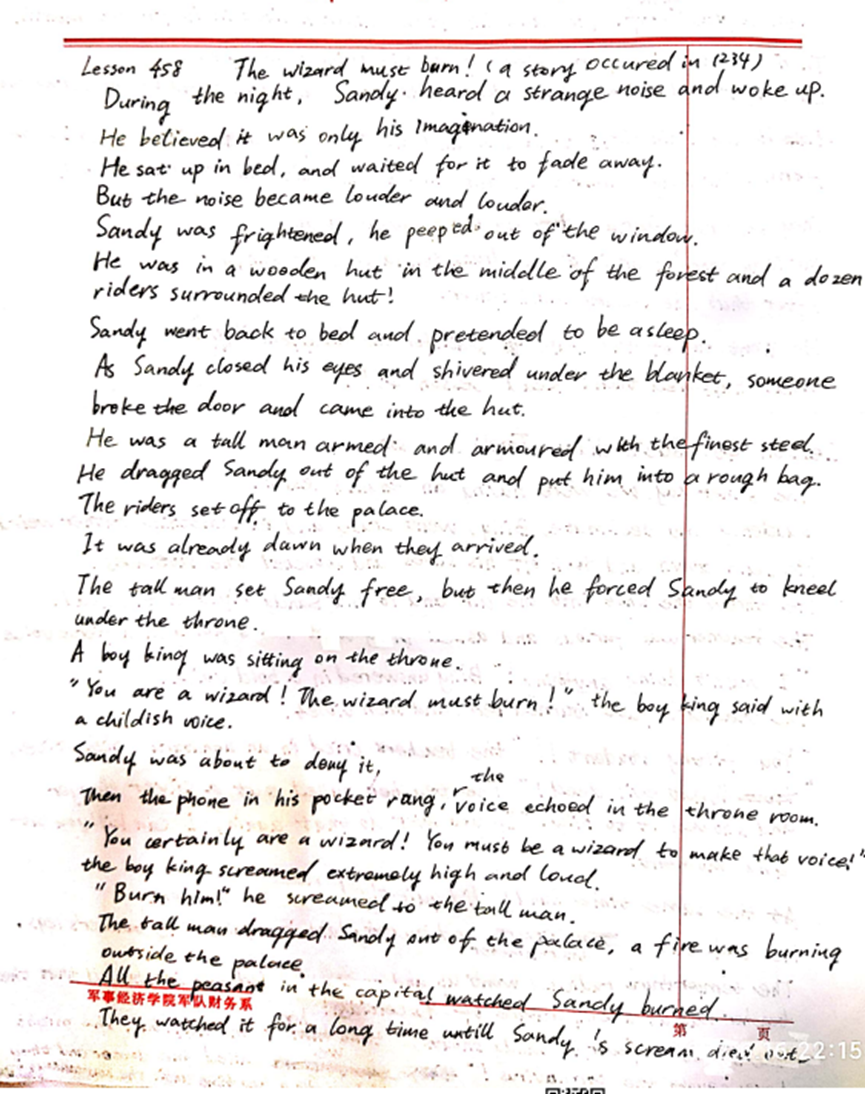 Lesson 458 The wizard must burn! (a story occured in 1234)
During the night, Sandy heard a strange noise and woke up.
He believed it was only his Imagination.
He sat up in bed, and waited for it to fade away.
But the noise became louder and louder.
Sandy was frightened, he peeped out of the window.
He was in a wooden hut in the middle of the forest and a dozen
riders surrounded the hut!
Sandy went back to bed and pretended to be asleep.
As Sandy closed his eyes and shivered under the blanket, someone
broke the door and came into the hut.
He was a tall man armed and armoured with the finest steel.
He dragged Sandy out of the hut and put him into a rough bag.
The riders set off to the palace.
It was already dawn when they arrived.
The tall man set Sandy free, but then he forced Sandy to kneel
under the throne.
A boy king was sitting on the throne.
"You are a wizard! The wizard must burn!" the boy king said with
a childish voice.
Sandy was about to deny it,
Then the phone in his pocket rang, the voice echoed in the throne room.
"You certainly are a wizard! You must be a wizard to make that voice!"
the boy king screamed extremely high and loud.
"Burn him!" he screamed to the tall man.
The tall man dragged Sandy out of the palace, a fire was burning
outside the palace.
All the peasant in the capital watched Sandy burned.
军事经济学院军队财务系
第 页
They watched it for a long time untill Sandy's scream died out.
22:15